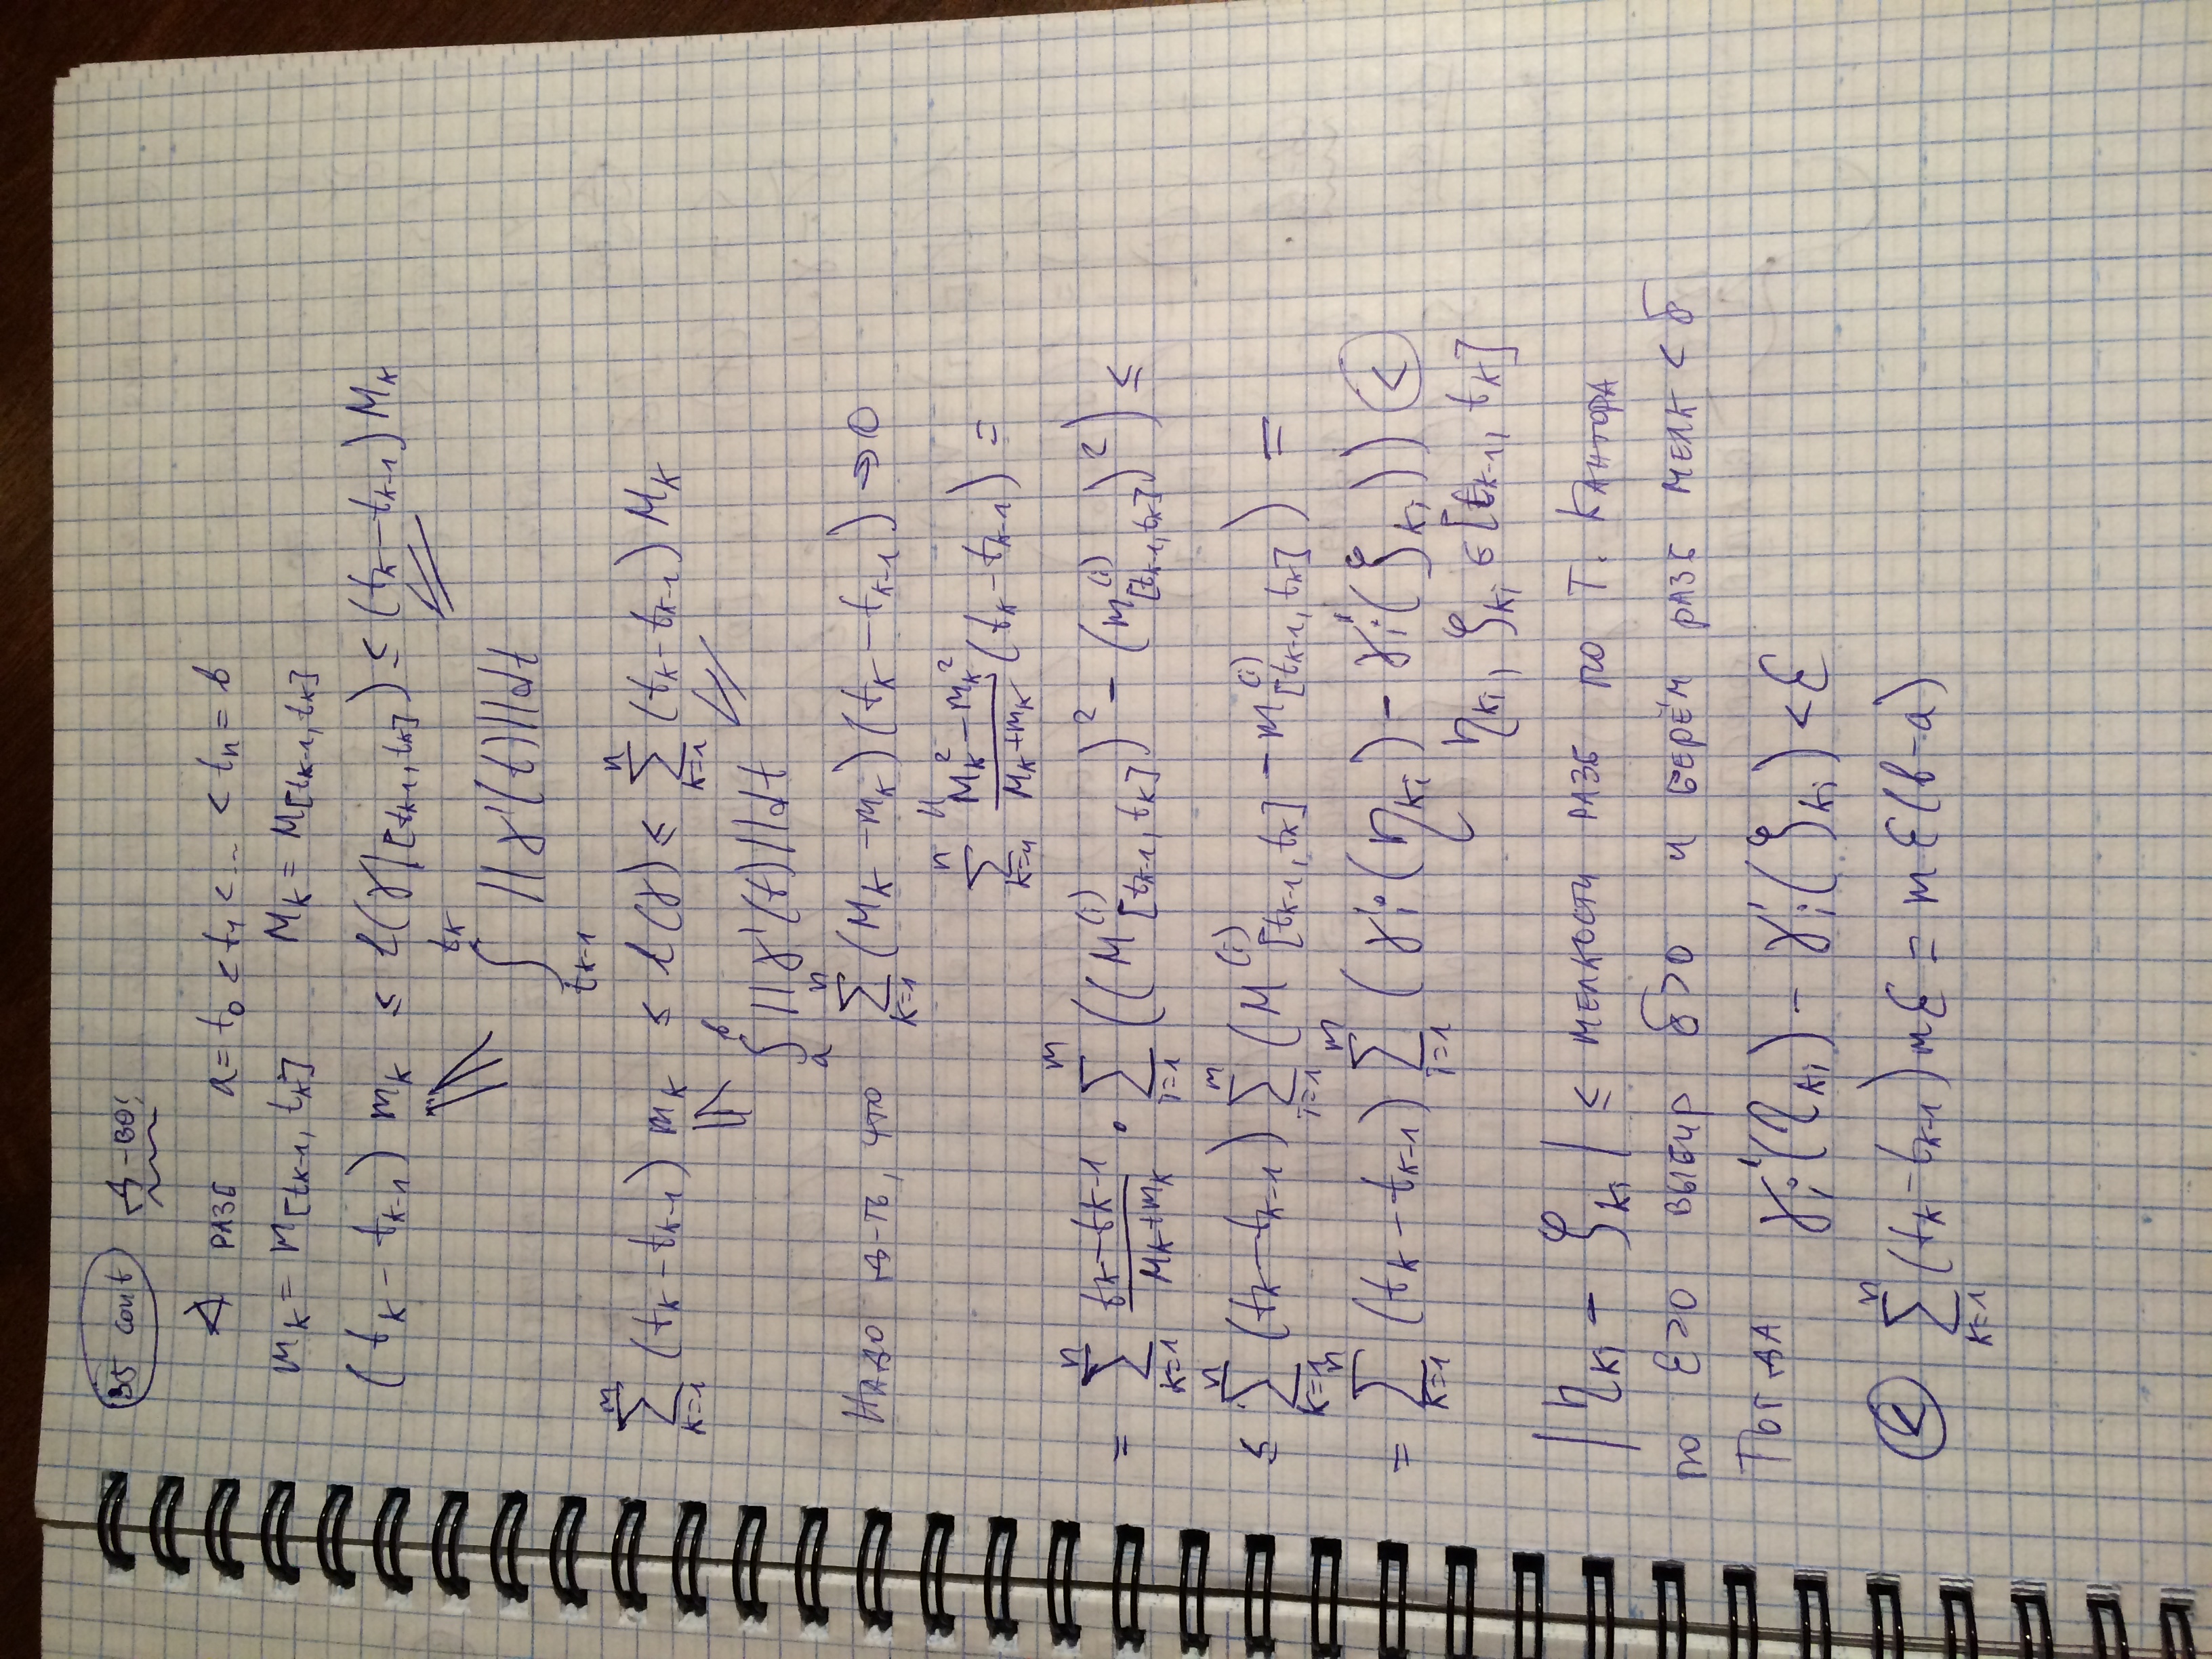 35 cont Д-во:
∢ разб a = t₀ < t₁ < ... < tₙ = b
m_k = m_[t_{k-1}, t_k] M_k = M_[t_{k-1}, t_k]
(t_k - t_{k-1}) m_k ≤ l(γ|_[t_{k-1}, t_k]) ≤ (t_k - t_{k-1}) M_k
∫_{t_{k-1}}^{t_k} ||γ'(t)|| dt
∑_{k=1}^{n} (t_k - t_{k-1}) m_k ≤ l(γ) ≤ ∑_{k=1}^{n} (t_k - t_{k-1}) M_k
∫_a^b ||γ'(t)|| dt
Надо д-ть, что ∑_{k=1}^{n} (M_k - m_k)(t_k - t_{k-1}) → 0
∑_{k=1}^{n} (M_k² - m_k²)/(M_k + m_k) (t_k - t_{k-1}) =
= ∑_{k=1}^{n} (t_k - t_{k-1})/(M_k + m_k) · ∑_{i=1}^{m} ((M^{(i)}_[t_{k-1}, t_k])² - (m^{(i)}_[t_{k-1}, t_k])²) ≤
≤ ∑_{k=1}^{n} (t_k - t_{k-1}) ∑_{i=1}^{m} (M^{(i)}_[t_{k-1}, t_k] - m^{(i)}_[t_{k-1}, t_k]) =
= ∑_{k=1}^{n} (t_k - t_{k-1}) ∑_{i=1}^{m} (γ'_i(η_{ki}) - γ'_i(ξ_{ki})) <
η_{ki}, ξ_{ki} ∈ [t_{k-1}, t_k]
|η_{ki} - ξ_{ki}| ≤ мелкости разб по т. Кантора
по ε > 0 выбир δ > 0 и берём разб мелк < δ
Тогда γ'_i(η_{ki}) - γ'_i(ξ_{ki}) < ε
< ∑_{k=1}^{n} (t_k - t_{k-1}) mε = mε(b - a)